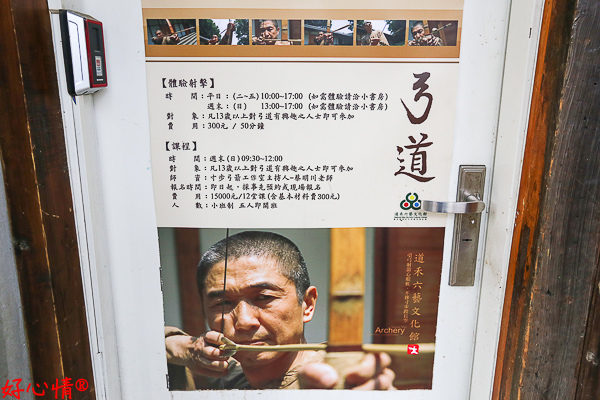 【體驗射擊】
時　間：平日：(二~五)10:00~17:00 (如需體驗請洽小書房)
週末：(日)　13:00~17:00 (如需體驗請洽小書房)
對　象：凡13歲以上對弓道有興趣之人士即可參加
費　用：300元 / 50分鐘
【課程】
時　間：週末(日)09:30~12:00
對　象：凡13歲以上對弓道有興趣之人士即可參加
師　資：寸步弓箭工作室主持人-蔡明川老師
報名時間：即日起，採事先預約或現場報名
費　用：15000元/12堂課(含基本材料費300元)
人　數：小班制 五人即開班
弓道
道禾六藝文化館
道禾六藝文化館
Archery
好心情®